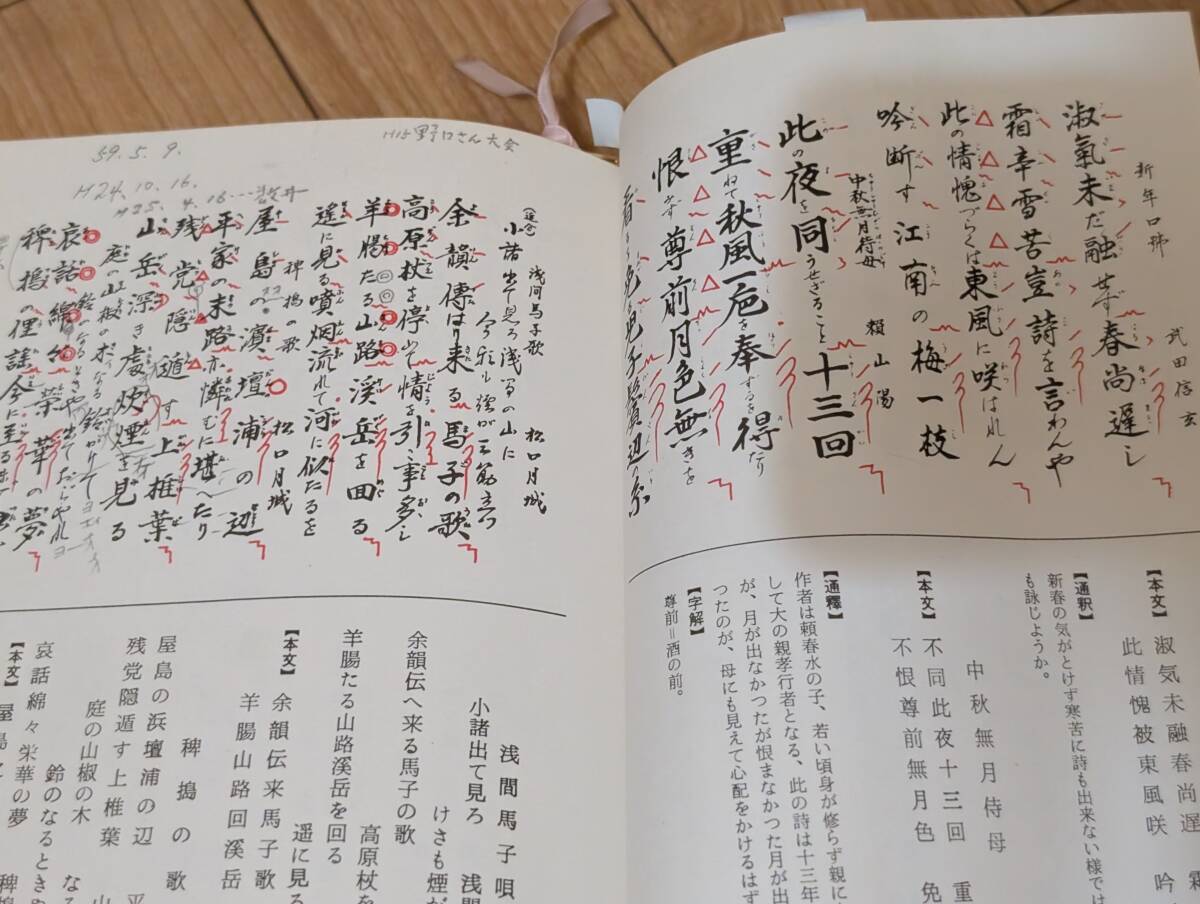 新年口號
武田信玄
淑氣未だ融せず春尚遅し
霜辛雪苦豈詩を言わんや
此の情愧づらくは東風に咲はれん
吟断す江南の梅一枝
中秋無月侍母
頼山陽
此の夜を同うせざること十三回
重ねて秋風一巵を奉ずるを得たり
恨みず尊前月色無きを
看る兒子鬢辺の糸
【本文】
淑気未融春尚遅
霜
此情愧被東風咲
吟
【通釈】
新春の気がとけず寒苦に詩も出来ない様では
も詠じようか。
中秋無月侍母
【本文】
不同此夜十三回
重
不恨尊前無月色
免
【通釋】
作者は頼春水の子、若い頃身が修らず親に
して大の親孝行者となる、此の詩は十三年
が、月が出なかつたが恨まなかつた月が出
つたのが、母にも見えて心配をかけるはず
【字解】
尊前=酒の前。
H15野口さん大会
59.5.9.
H24.10.16.
H25.4.16…
浅間馬子歌
松口月城
小諸出て見ろ浅間の山に
今朝も煙が三筋立つ
余韻傳はり来る馬子の歌
高原杖を停めて情を引く事多し
羊腸たる山路溪岳を回る
遥に見る噴烟流れて河に似たるを
稗搗の歌
松口月城
屋島の濱壇浦の辺
平家の末路亦憐むに堪へたり
残党隠遁す上椎葉
山岳深き處炊煙を見る
庭の山椒の木なる鈴かけて
鈴のなるときや出ておぢやれヨー
哀話綿々榮華の夢
稗搗の俚謡今に至るまで
浅間馬子唄
小諸出て見ろ
浅間
けさも煙が
余韻伝へ来る馬子の歌
高原杖を
羊腸たる山路溪岳を回る
遥に見る
【本文】
余韻伝来馬子歌
羊腸山路回溪岳
稗搗の歌
屋島の浜壇浦の辺
平
残党隠遁す上椎葉
山
庭の山椒の木
なる
鈴のなるときゃ
哀話綿々栄華の夢
稗搗
【本文】
屋島